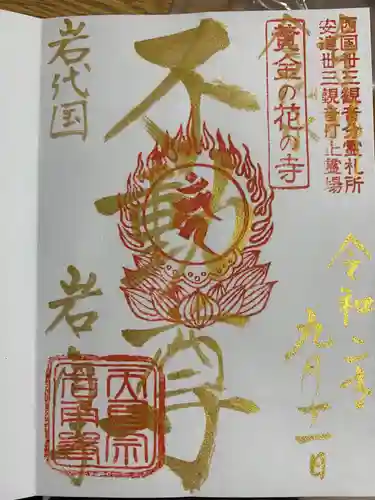 西国卅三観音分霊札所
安達卅三観音打止霊場
黄金の花の寺
令和二年
九月十一日
不動尊
岩代国
岩
天台宗